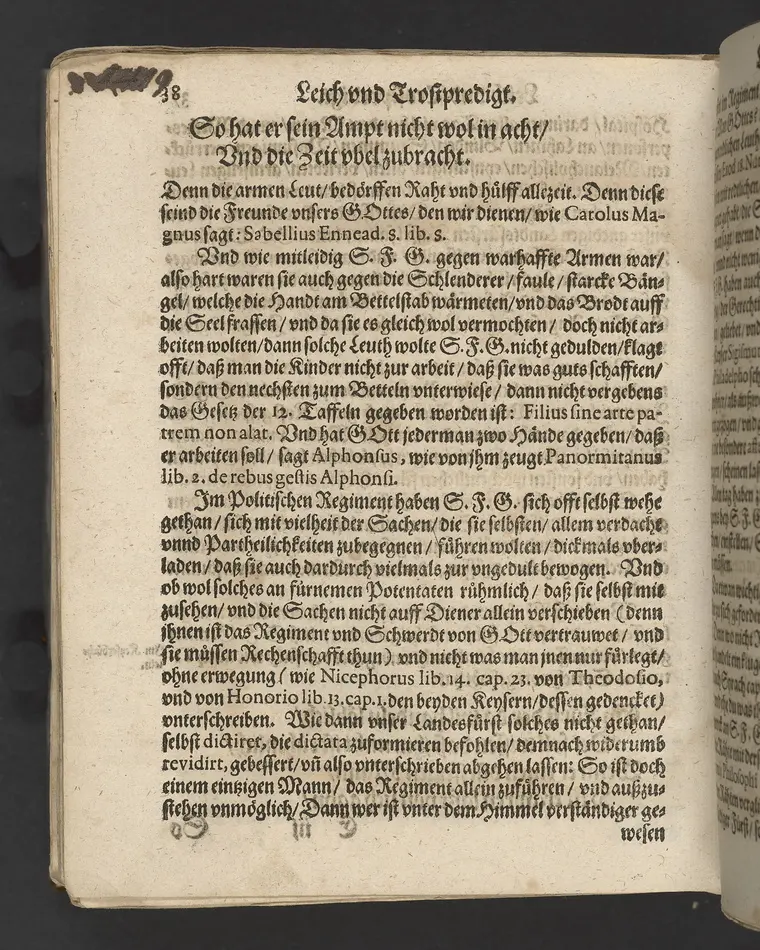 38 Leich vnd Trostpredigt.
So hat er sein Ampt nicht wol in acht/
Vnd die Zeit vbel zubracht.
Denn die armen Leut/ bedörffen Raht vnd hülff allezeit. Denn diese
seind die Freunde vnsers GOttes/ den wir dienen/ wie Carolus Ma-
gnus sagt: Sabellius Ennead. 8. lib. 8.
Vnd wie mitleidig S. F. G. gegen warhaffte Armen war/
also hart waren sie auch gegen die Schlenderer/ faule/ starcke Bän-
gel/ welche die Handt am Bettelstab wärmeten/ vnd das Brodt auff
die Seel frassen/ vnd da sie es gleich wol vermochten/ doch nicht ar-
beiten wolten/ dann solche Leuth wolte S. F. G. nicht gedulden/ klagt
offt/ daß man die Kinder nicht zur arbeit/ daß sie was guts schafften/
sondern den nechsten zum Betteln vnterwiese/ dann nicht vergebens
das Gesetz der 12. Taffeln gegeben worden ist: Filius sine arte pa-
trem non alat. Vnd hat GOtt jederman zwo Hände gegeben/ daß
er arbeiten soll/ sagt Alphonsus, wie von jhm zeugt Panormitanus
lib. 2. de rebus gestis Alphonsi.
Im Politischen Regiment haben S. F. G. sich offt selbst wehe
gethan/ sich mit vielheit der Sachen/ die sie selbsten/ allem verdacht
vnnd Partheilichkeiten zubegegnen/ führen wolten/ dickmals vber-
laden/ daß sie auch dardurch vielmals zur vngedult bewogen. Vnd
ob wol solches an fürnemen Potentaten rühmlich/ daß sie selbst mit
zusehen/ vnd die Sachen nicht auff Diener allein verschieben (denn
jhnen ist das Regiment vnd Schwerdt von GOtt vertrauwet/ vnd
sie müssen Rechenschafft thun) vnd nicht was man jnen nur fürlegt/
ohne erwegung (wie Nicephorus lib. 14. cap. 23. von Theodosio,
vnd von Honorio lib. 13. cap. 1. den beyden Keysern/ dessen gedencket)
vnterschreiben. Wie dann vnser Landesfürst solches nicht gethan/
selbst dictiret, die dictata zuformieren befohlen/ demnach widerumb
revidirt, gebessert/ vñ also vnterschrieben abgehen lassen: So ist doch
einem eintzigen Mann/ das Regiment allein zuführen/ vnd außzu-
stehen vnmöglich/ Dann wer ist vnter dem Himmel verständiger ge-
wesen